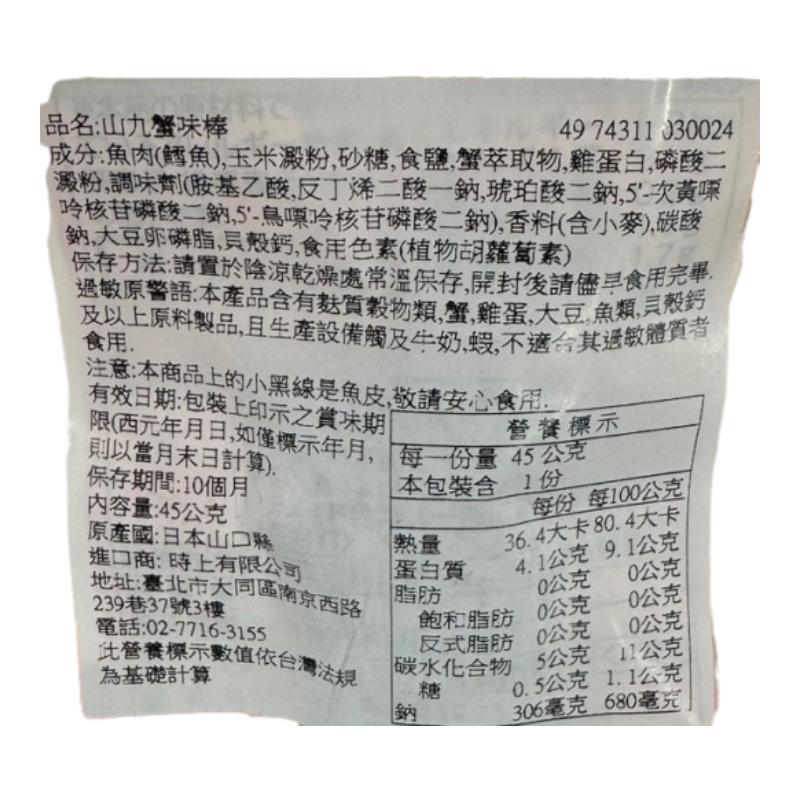 品名:山九蟹味棒 49 74311 030024
成分:魚肉(鱈魚),玉米澱粉,砂糖,食鹽,蟹萃取物,雞蛋白,磷酸二
澱粉,調味劑(胺基乙酸,反丁烯二酸一鈉,琥珀酸二鈉,5'-次黃嘌
呤核苷磷酸二鈉,5'-鳥嘌呤核苷磷酸二鈉),香料(含小麥),碳酸
鈉,大豆卵磷脂,貝殼鈣,食用色素(植物胡蘿蔔素)
保存方法:請置於陰涼乾燥處常溫保存,開封後請儘早食用完畢.
過敏原警語:本產品含有麩質穀物類,蟹,雞蛋,大豆,魚類,貝殼鈣
及以上原料製品,且生產設備觸及牛奶,蝦,不適合其過敏體質者
食用.
注意:本商品上的小黑線是魚皮,敬請安心食用.
有效日期:包裝上印示之賞味期
限(西元年月日,如僅標示年月,
則以當月末日計算).
保存期間:10個月
內容量:45公克
原產國:日本山口縣
進口商: 時上有限公司
地址:臺北市大同區南京西路
239巷37號3樓
電話:02-7716-3155
此營養標示數值依台灣法規
為基礎計算
營養標示
每一份量 45 公克
本包裝含 1 份
每份 每100公克
熱量 36.4大卡 80.4大卡
蛋白質 4.1公克 9.1公克
脂肪 0公克 0公克
飽和脂肪 0公克 0公克
反式脂肪 0公克 0公克
碳水化合物 5公克 11公克
糖 0.5公克 1.1公克
鈉 306毫克 680毫克